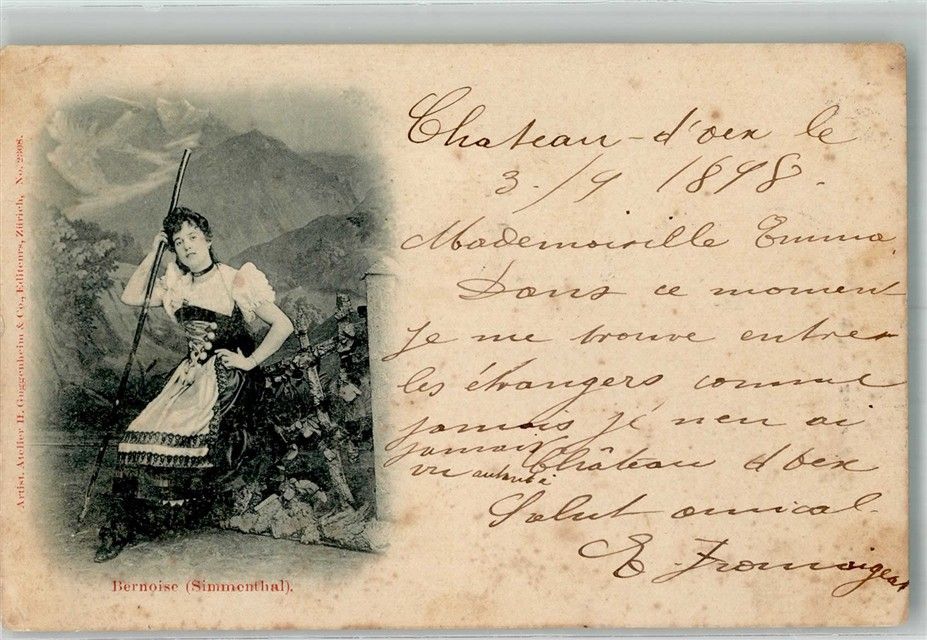 Artist. Atelier H. Guggenheim & Co., Editeurs, Zürich, No. 2308.
Bernoise (Simmenthal).
Chateau-d'oex le
3./9 1898.
Mademoiselle Emma.
Dans ce moment
je me trouve entre
les étrangers comme
jamais je n'en ai
jamais
vu Château d'oex
Salut amical.
E.